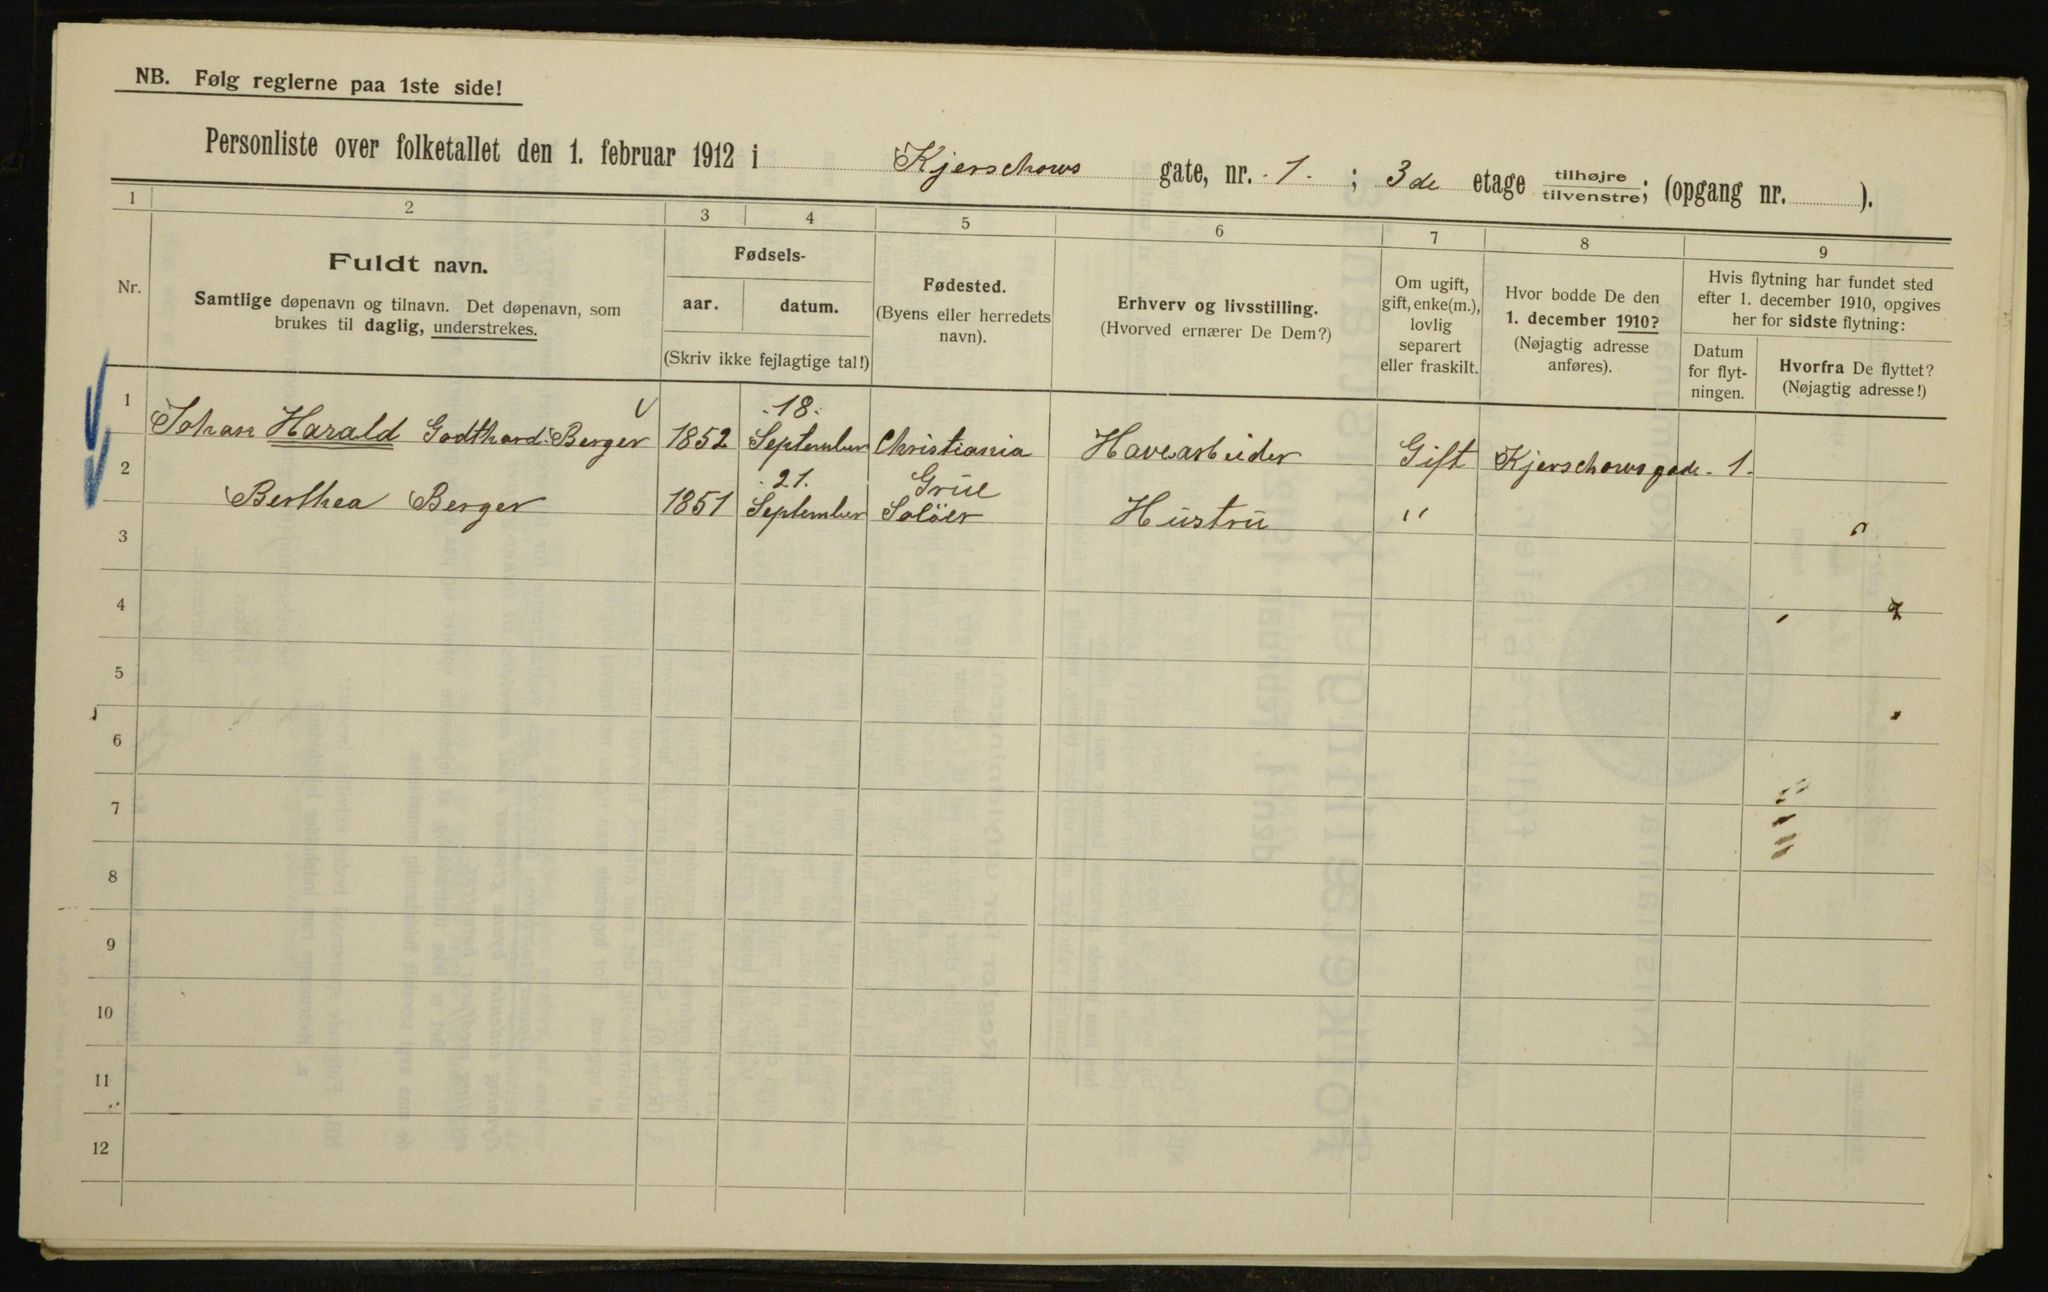 NB. Følg reglerne paa 1ste side!
Personliste over folketallet den 1. februar 1912 i Kjerschows gate, nr. 1. ; 3de etage tilhøjre/tilvenstre; (opgang nr. ).
1 2 3 4 5 6 7 8 9
Nr.
Fuldt navn.
Samtlige døpenavn og tilnavn. Det døpenavn, som
brukes til daglig, understrekes.
Fødsels-
aar. datum.
(Skriv ikke fejlagtige tal!)
Fødested.
(Byens eller herredets
navn).
Erhverv og livsstilling.
(Hvorved ernærer De Dem?)
Om ugift,
gift, enke(m.),
lovlig
separert
eller fraskilt.
Hvor bodde De den
1. december 1910?
(Nøjagtig adresse
anføres).
Hvis flytning har fundet sted
efter 1. december 1910, opgives
her for sidste flytning:
Datum
for flyt-
ningen.
Hvorfra De flyttet?
(Nøjagtig adresse!)
1 Johan Harald Godthard Berger 1852 18. September Christiania Havearbeider Gift Kjerschowsgade 1.
2 Berthea Berger 1851 21. September Grue Solöer Hustru "
3
4
5
6
7
8
9
10
11
12